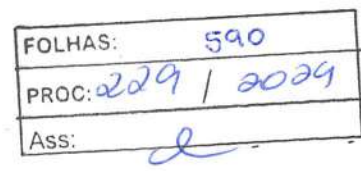 FOLHAS: 590
PROC: 229 / 2024
Ass: